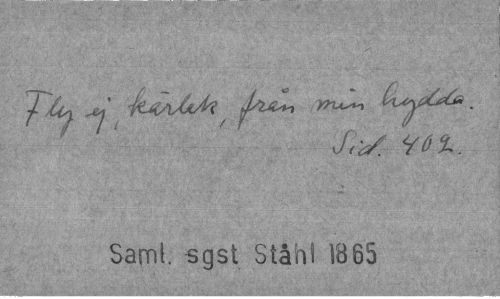 Fly ej, kärlek, från min hydda.
Sid. 402.
Saml. sgst Ståhl 1865